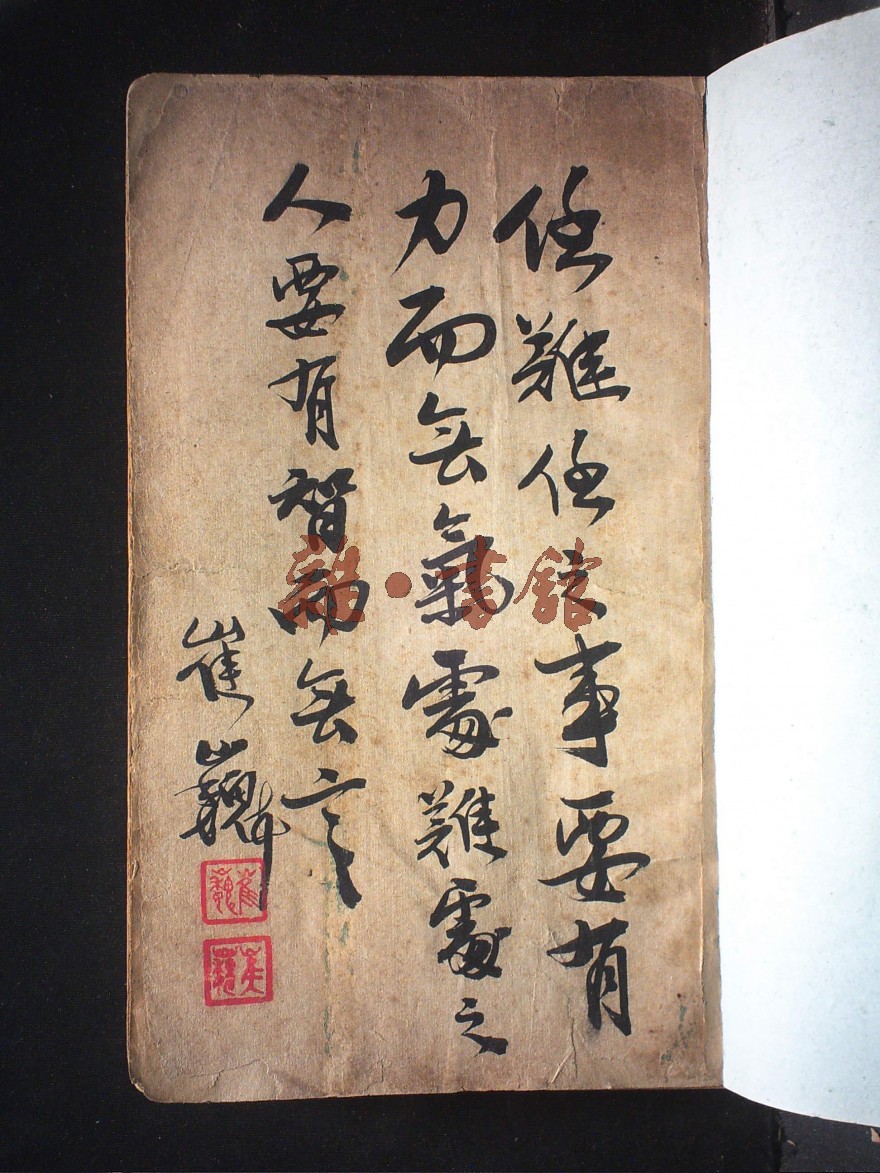 任難任之事要有
力而無氣處難處之
人要有智而無言
崔巍
韶·書館
崔巍